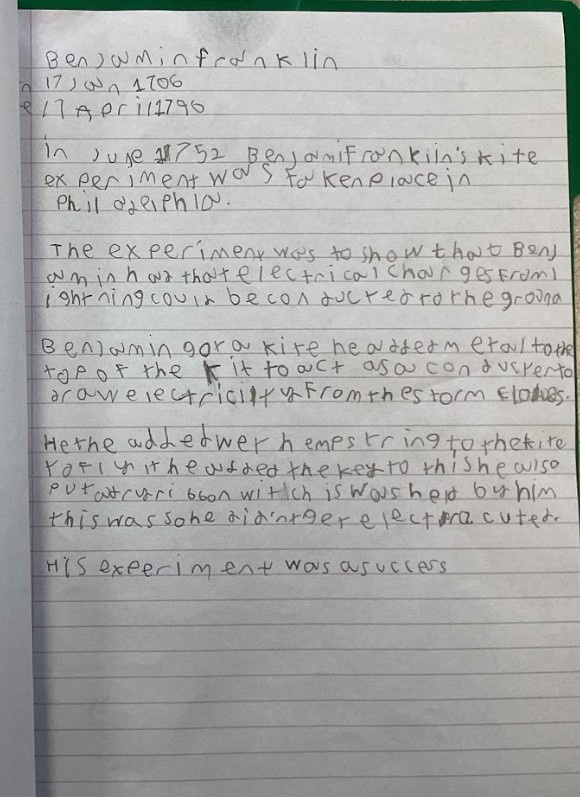 Benjamin franklin
n 17 Jan 1706
e 17 April 1790
In June 1752 BenJamiFrankiin's kite
experiment was taken place in
Philadelphia.
The experiment was to show that Benj
amin had that electrical charges from l
ightning could be conducted to the ground
Benjamin got a kite he added metal to the
top of the kit to act as a conducter to
draw electricilty from the storm clouds.
He the added wet hemp string to the kite
to fly it he added the key to this he also
put a dry ribbon witch is was held by him
this was so he didn't get electracuted.
His experiment was a success